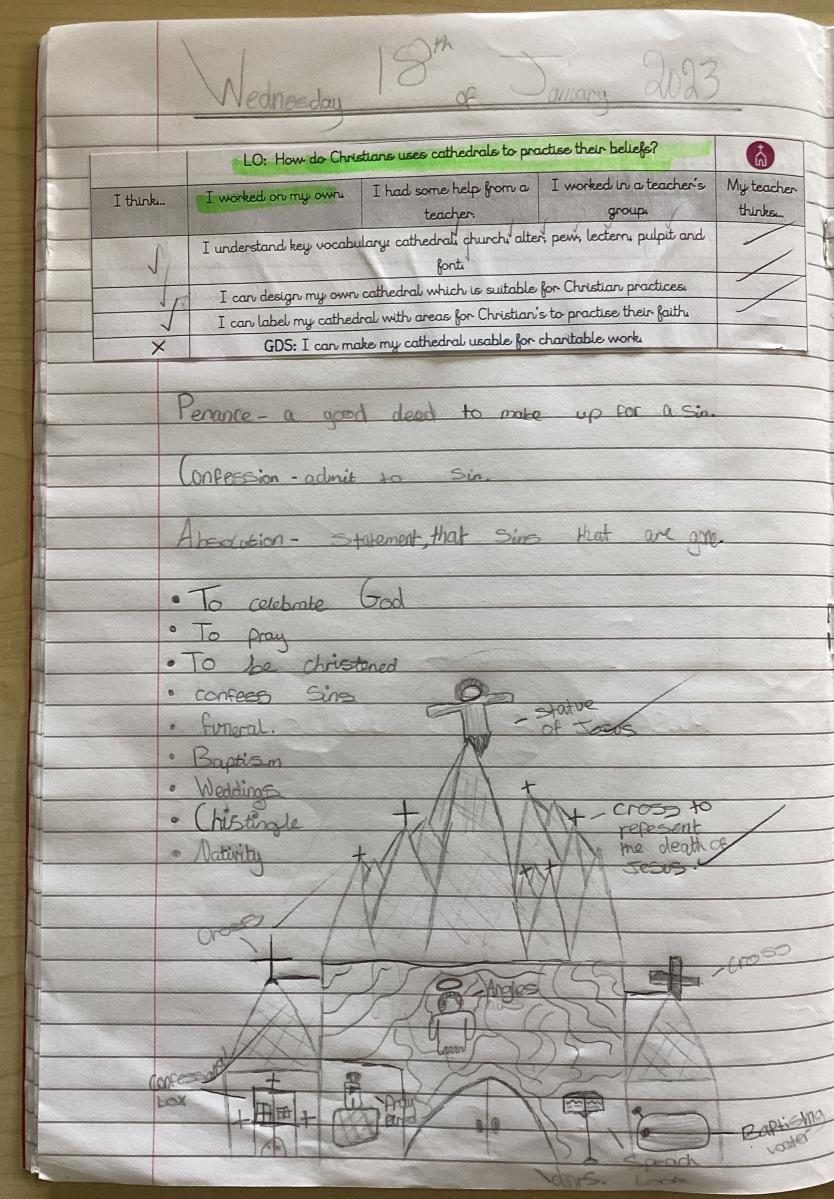 Wednesday 18th of January 2023
LO: How do Christians uses cathedrals to practise their beliefs?
I think...
I worked on my own.
I had some help from a teacher.
I worked in a teacher's group.
My teacher thinks...
I understand key vocabulary: cathedral, church, alter, pew, lectern, pulpit and
font.
I can design my own cathedral which is suitable for Christian practices.
I can label my cathedral with areas for Christian's to practise their faith.
GDS: I can make my cathedral usable for charitable work.
Penance - a good deed to make up for a sin.
Confession - admit to sin.
Absolution - statement, that sins that are gone.
• To celebrate God
• To pray
• To be christened
• confess sins
• funeral.
• Baptism
• Weddings
• Chistingle
• Nativity
- statue
of Jesus
- cross to
repesent
the death of
Jesus.
Cross
- cross
- Angles
confession
box
Baptising
water
Speach